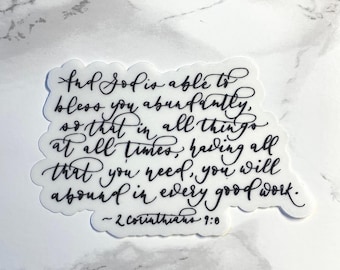 And God is able to
bless you abundantly,
so that in all things
at all times, having all
that you need, you will
abound in every good work.
~ 2 Corinthians 9:8